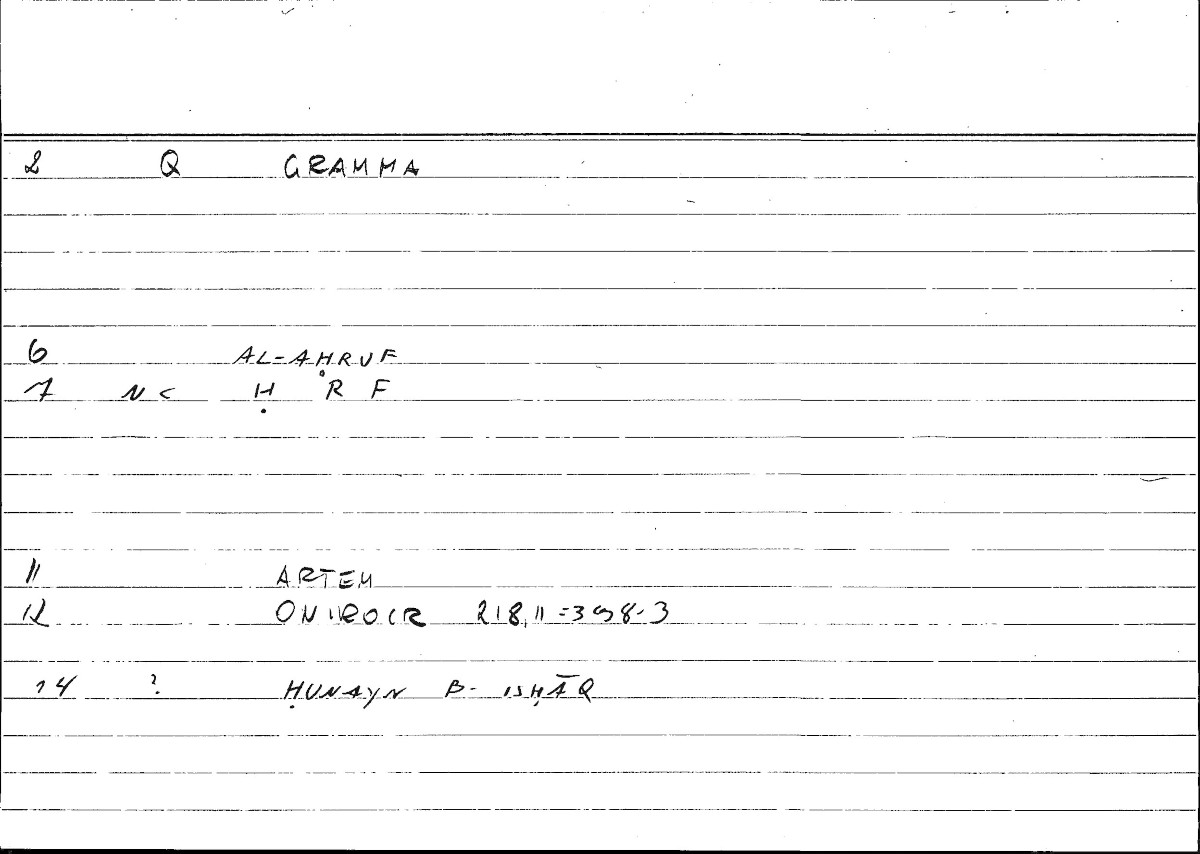 2 Q GRAMMA
6 AL-AḤRUF
7 N < Ḥ R F
11 ARTEM
12 ONIROCR 218,11=398-3
14 ? ḤUNAYN B. ISḤĀQ